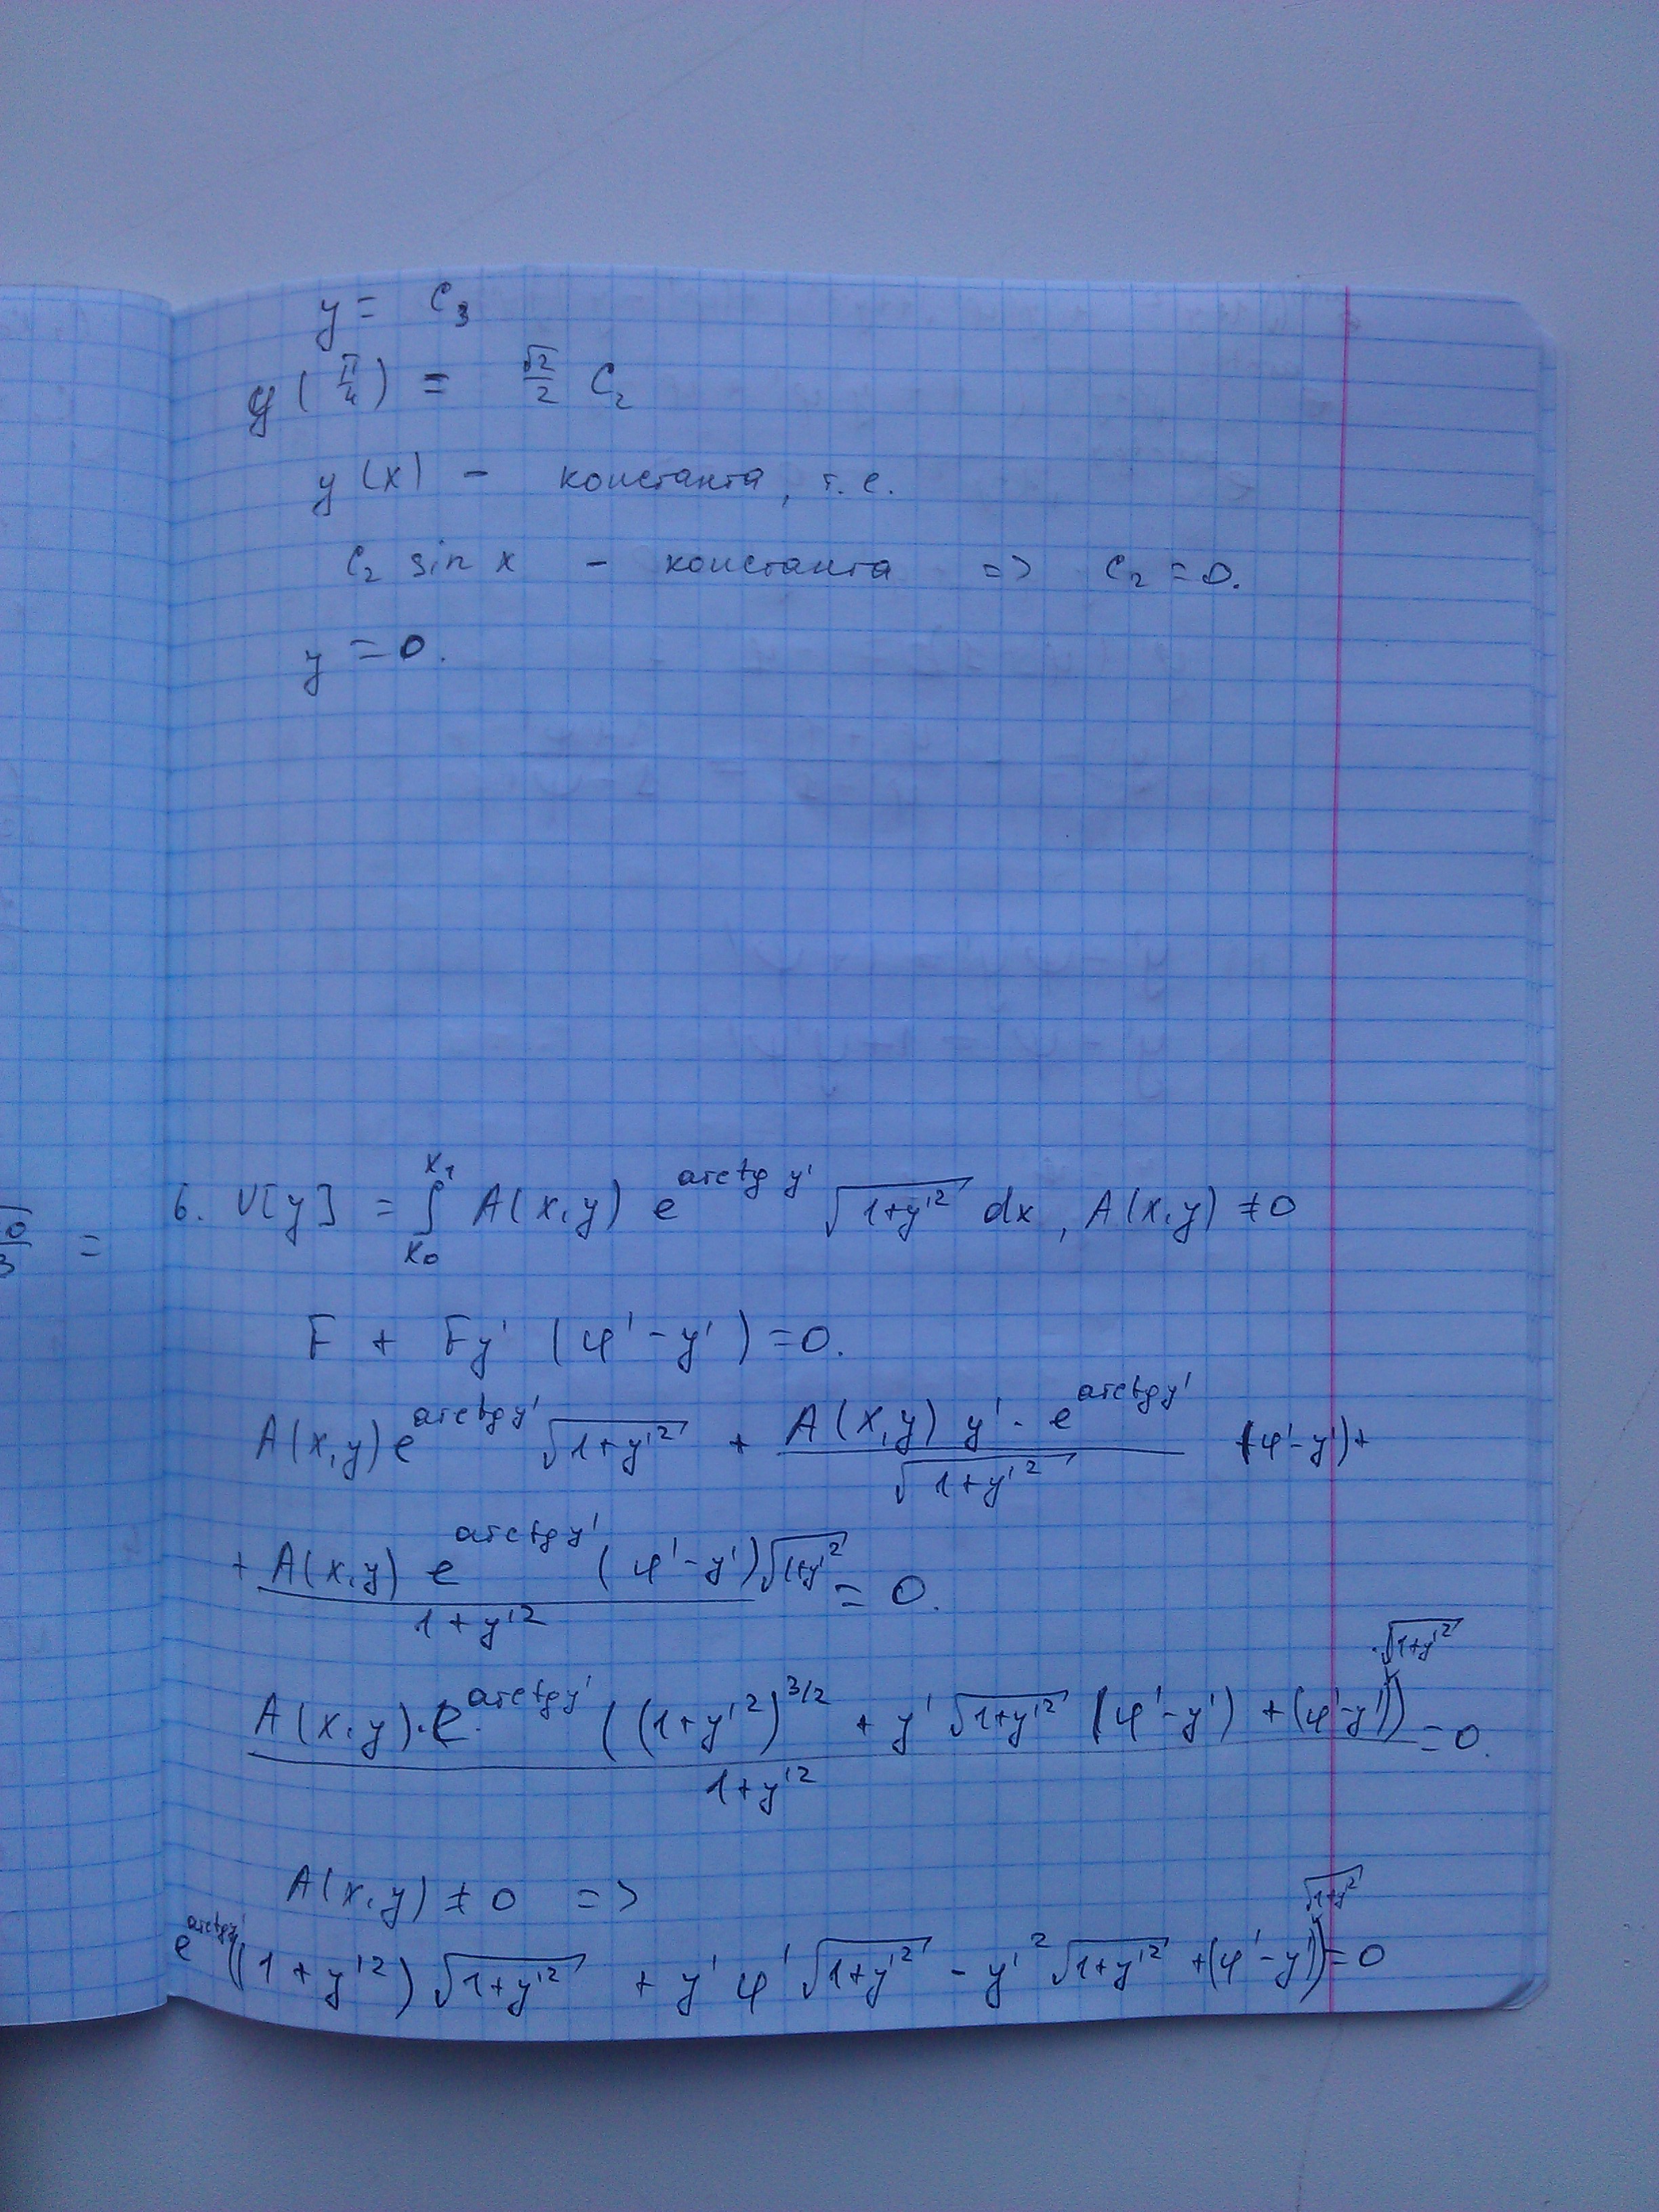 y = C₃
y(π/4) = √2/2 C₂
y(x) - константа, т.е.
C₂ sin x - константа => C₂ = 0.
y = 0.
6. V[y] = ∫_{x₀}^{x₁} A(x,y) e^{arctg y'} √(1+y'²) dx, A(x,y) ≠ 0
=
F + Fy' (φ' - y') = 0.
A(x,y) e^{arctg y'} √(1+y'²) + (A(x,y) y' · e^{arctg y'})/√(1+y'²) (φ' - y') +
+ (A(x,y) e^{arctg y'} (φ' - y') √(1+y'²))/(1+y'²) = 0.
(A(x,y) · e^{arctg y'} ((1+y'²)^{3/2} + y' √(1+y'²) (φ' - y') + (φ' - y') · √(1+y'²)))/(1+y'²) = 0.
A(x,y) ≠ 0 =>
e^{arctg y'} ((1+y'²) √(1+y'²) + y' φ' √(1+y'²) - y'² √(1+y'²) + (φ' - y') √(1+y'²)) = 0